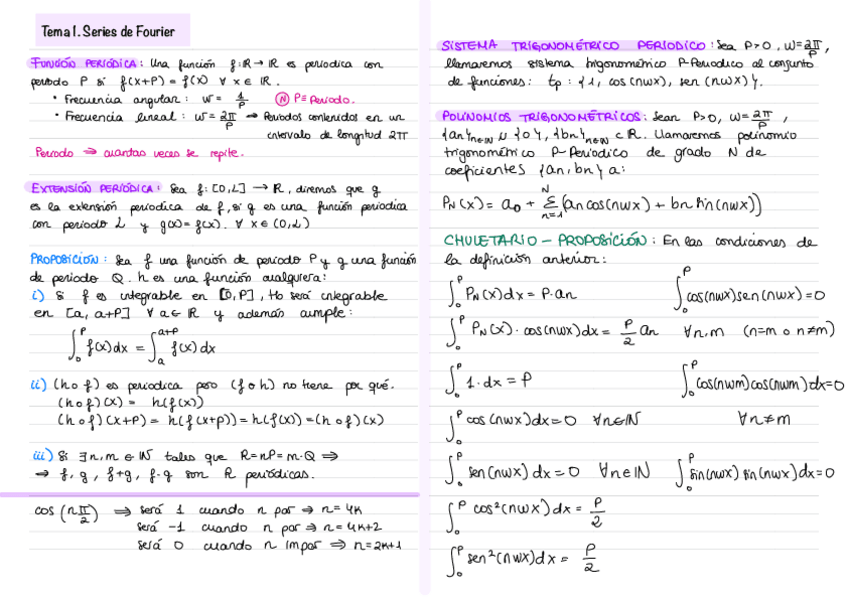 Tema 1. Series de Fourier
FUNCIÓN PERIÓDICA: Una función f: ℝ → ℝ es periodica con
periodo P si f(x+P) = f(x) ∀ x ∈ ℝ.
• Frecuencia angular: w = 1/P (N) P ≡ Periodo.
• Frecuencia lineal: w = 2π/P → Periodos contenidos en un
intervalo de longitud 2π
Periodo → cuantas veces se repite.
EXTENSIÓN PERIÓDICA: Sea f: [0,L] → ℝ, diremos que g
es la extensión periodica de f, si g es una función periodica
con periodo L y g(x) = f(x). ∀ x ∈ (0,L)
PROPOSICIÓN: Sea f una función de periodo P y g una función
de periodo Q. h es una función cualquiera:
i) Si f es integrable en [0,P], lo será integrable
en [a, a+P] ∀ a ∈ ℝ y además cumple:
∫₀^P f(x)dx = ∫ₐ^{a+P} f(x)dx
ii) (h∘f) es periodica pero (f∘h) no tiene por qué.
(h∘f)(x) = h(f(x))
(h∘f)(x+P) = h(f(x+P)) = h(f(x)) = (h∘f)(x)
iii) Si ∃ n,m ∈ ℕ tales que R = nP = m·Q ⇒
⇒ f, g, f+g, f·g son R periódicas.
cos (nπ/2) ⇒ será 1 cuando n par → n = 4k
será -1 cuando n par → n = 4k+2
será 0 cuando n impar → n = 2k+1
SISTEMA TRIGONOMÉTRICO PERIODICO: Sea P>0, w = 2π/P,
llamaremos sistema trigonométrico P-Periodico al conjunto
de funciones: tp: {1, cos(nwx), sen(nwx)}.
POLINOMIOS TRIGONOMÉTRICOS: Sean P>0, w = 2π/P,
{an}n∈ℕ ∪ {0}, {bn}n∈ℕ ⊂ ℝ. Llamaremos polinomio
trigonométrico P-Periodico de grado N de
coeficientes {an, bn} a:
P_N(x) = a₀ + Σ_{n=1}^N (an cos(nwx) + bn sin(nwx))
CHULETARIO - PROPOSICIÓN: En las condiciones de
la definición anterior:
∫₀^P P_N(x)dx = P·an ∫₀^P cos(nwx)sen(nwx) = 0
∫₀^P P_N(x)·cos(nwx)dx = P/2 an ∀n,m (n=m o n≠m)
∫₀^P 1·dx = P ∫₀^P cos(nwm)cos(nwm)dx = 0
∫₀^P cos(nwx)dx = 0 ∀n∈ℕ ∀n≠m
∫₀^P sen(nwx)dx = 0 ∀n∈ℕ ∫₀^P sin(nwx) sin(nwx)dx = 0
∫₀^P cos²(nwx)dx = P/2
∫₀^P sen²(nwx)dx = P/2